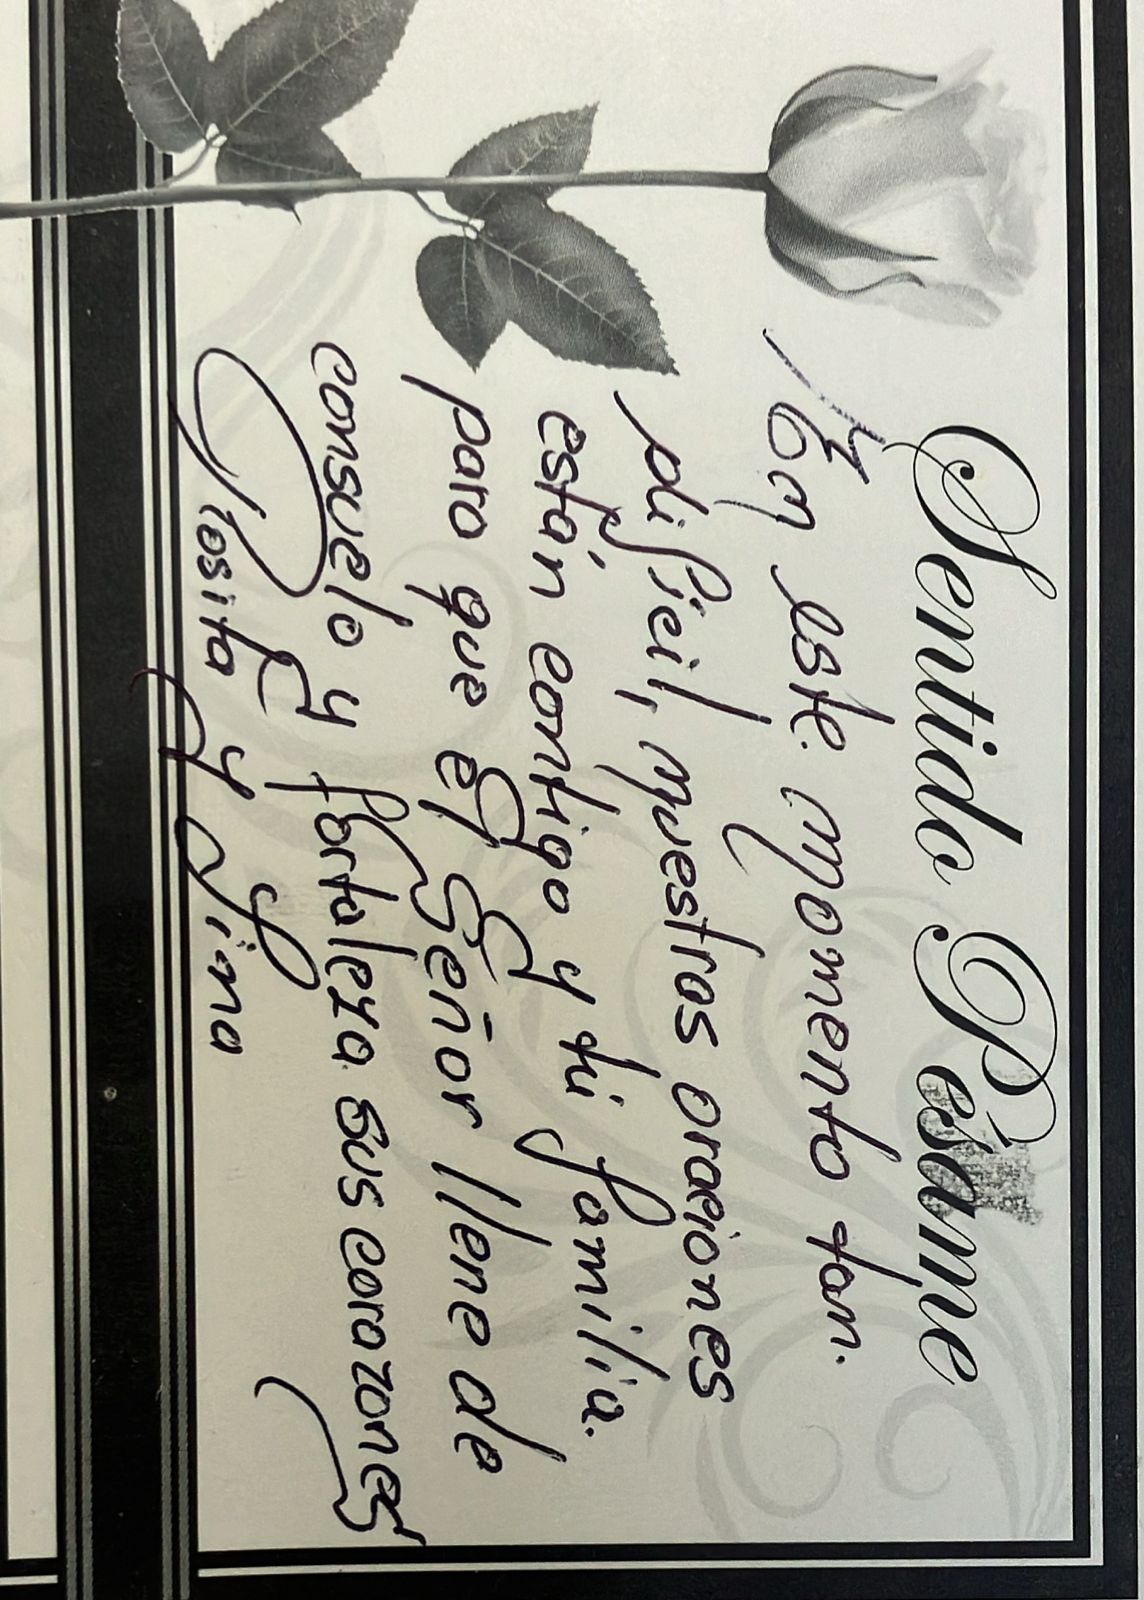 Sentido Pésame
En este momento tan
difícil, nuestras oraciones
están contigo y tu familia.
para que el Señor llene de
consuelo y fortaleza sus corazones
Rosita y Lina